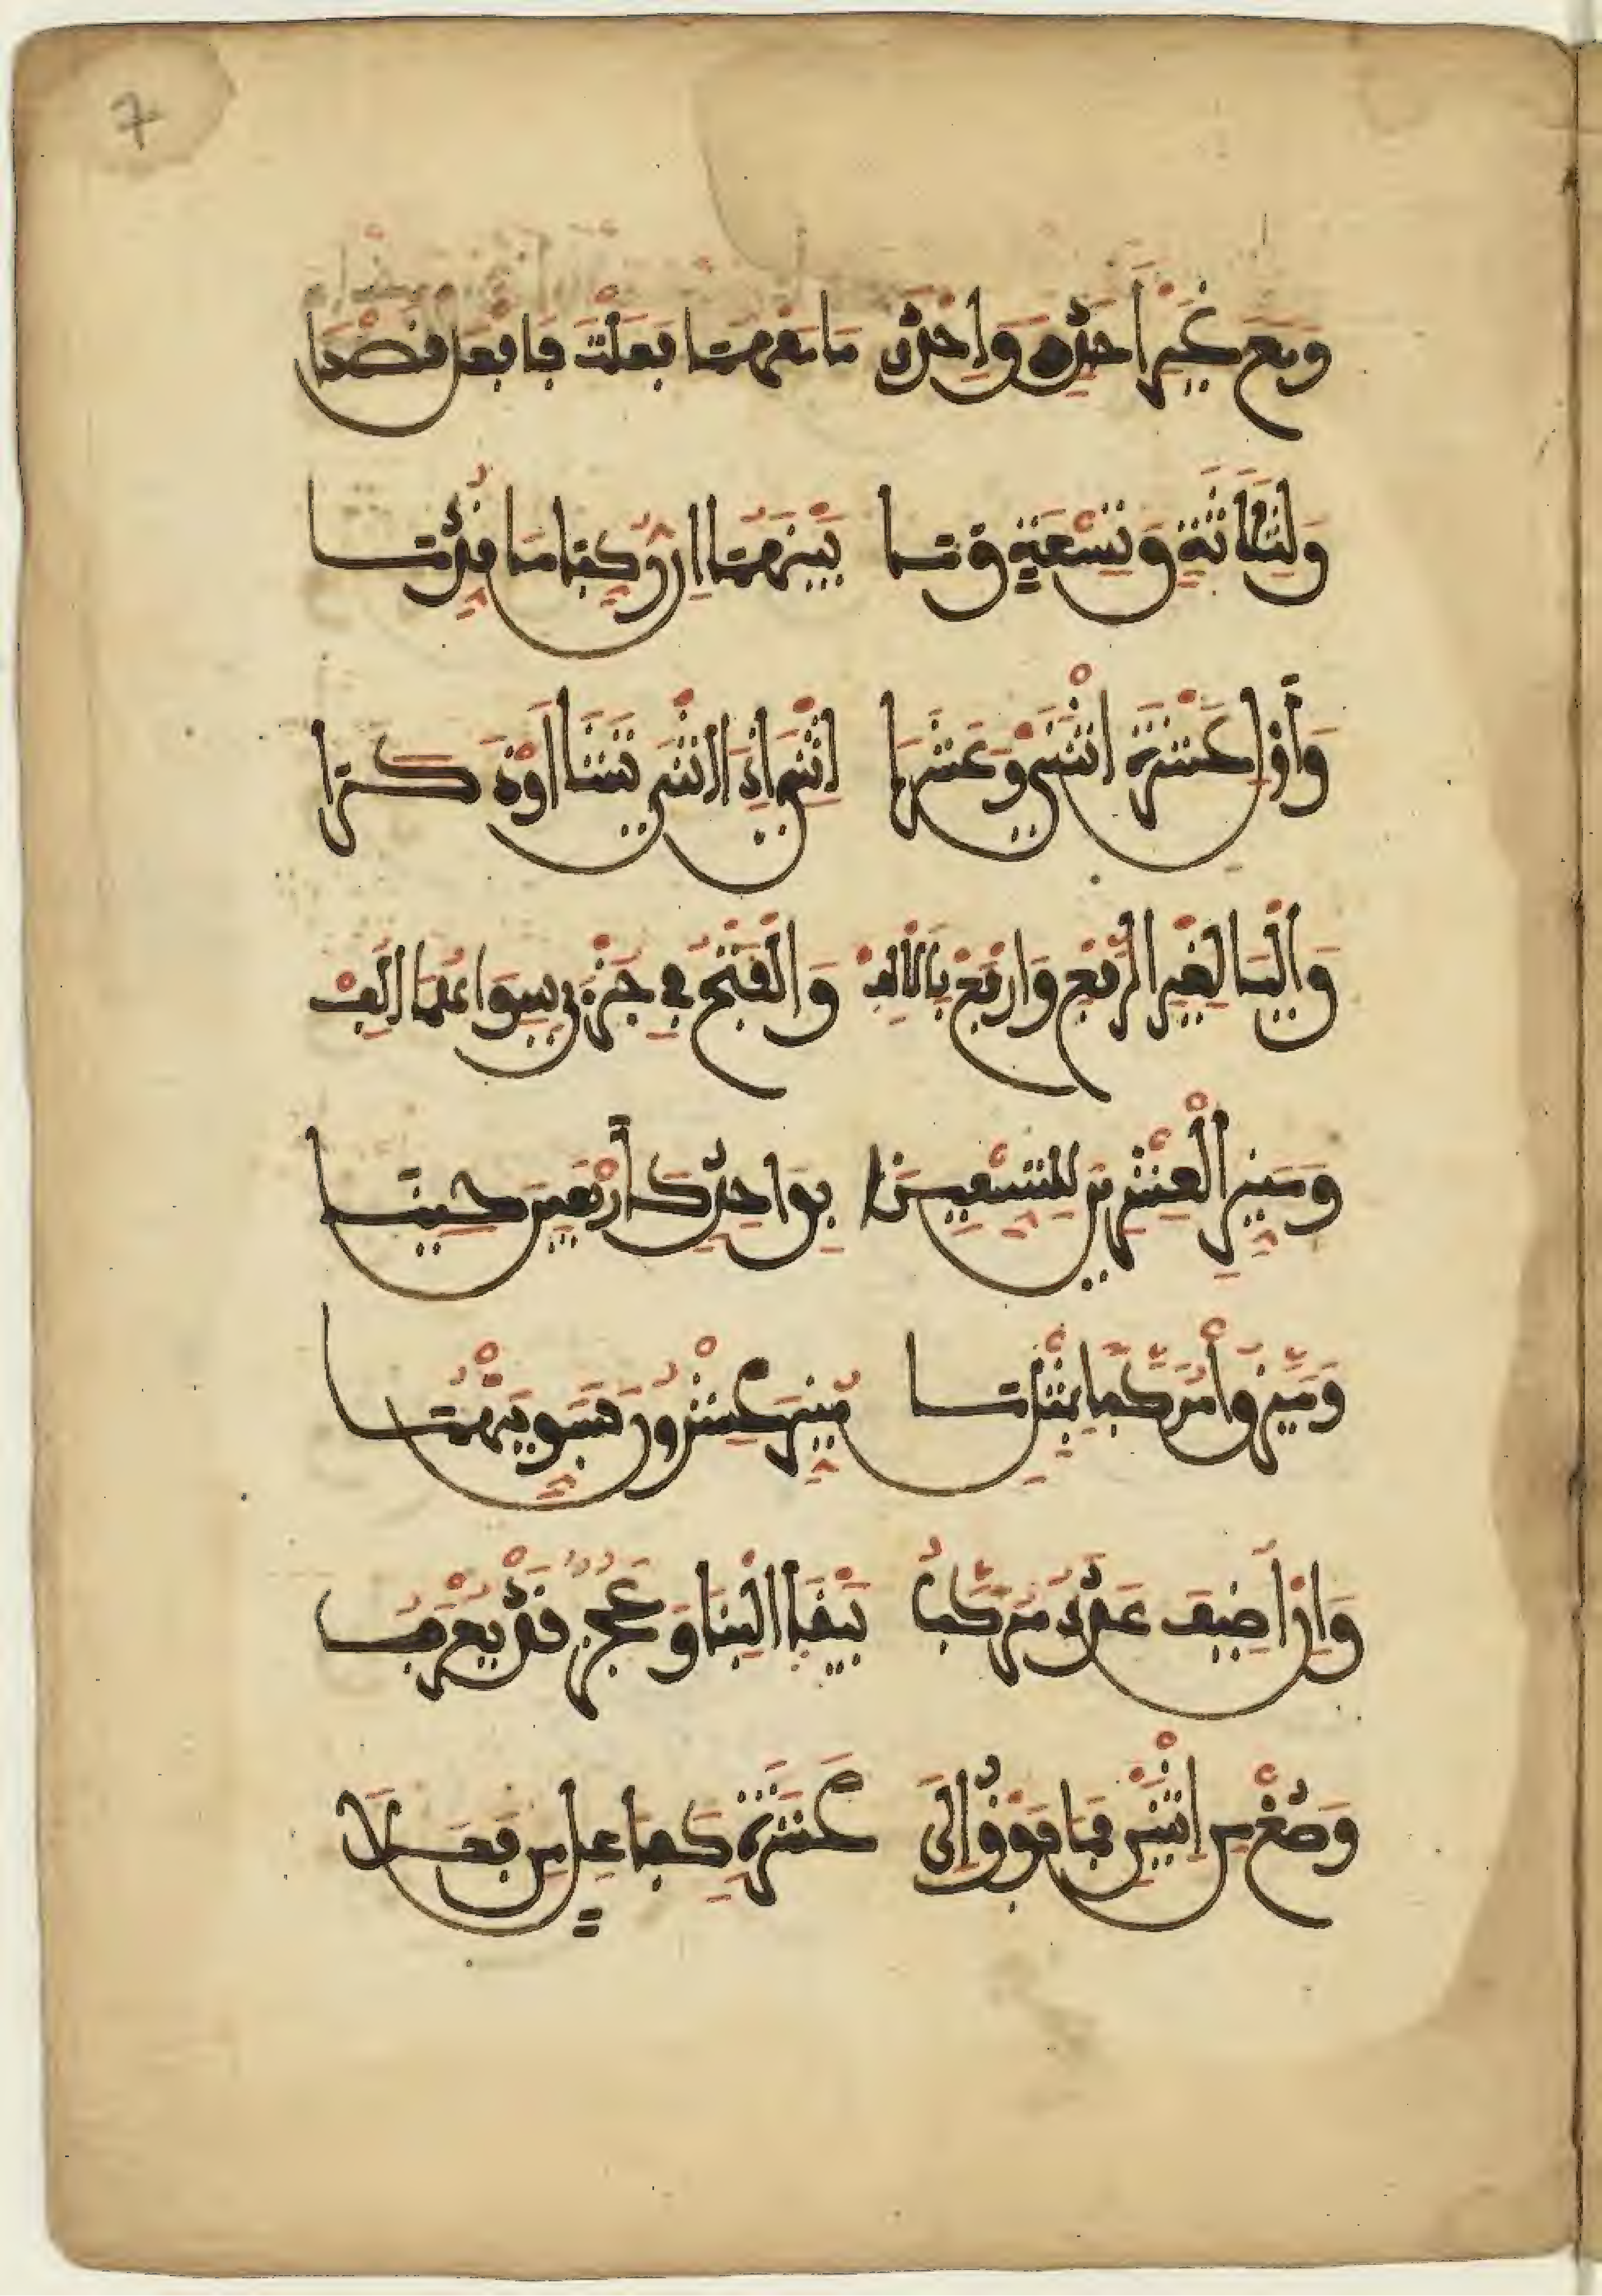 7
وَمَعَ غَيْرِ أَحَدٍ وَإِحْدَى مَا مَعْهُمَا فَعَلْتَ فَافْعَلْ قَصْدَا
وَلِثَلَاثَةٍ وَتِسْعَةٍ وَمَا بَيْنَهُمَا إِن رُكِّبَا مَا قُدِّمَا
وَأَوْلِ عَشْرَةَ اثْنَتَيْ وَعَشَرَا اثْنَيْ إِذَا أُنْثَى تَشَا أَوْ ذَكَرَا
وَالْيَا لِغَيْرِ الرَّفْعِ وَارْفَعْ بِالْأَلِفْ وَالْفَتْحُ فِي جُزْءَيْ سِوَاهُمَا أُلِفْ
وَمَيِّزِ الْعِشْرِينَ لِلتِّسْعِينَا بِوَاحِدٍ كَأَرْبَعِينَ حِينَا
وَمَيَّزُوا مُرَكَّبًا بِمِثْلِ مَا مُيِّزَ عِشْرُونَ فَسَوِّيَنْهُمَا
وَإِنْ أُضِيفَ عَدَدٌ مُرَكَّبُ يَبْقَى الْبِنَا وَعَجُزٌ قَدْ يُعْرَبُ
وَصُغْ مِنِ اثْنَيْنِ فَمَا فَوْقُ إِلَى عَشَرَةٍ كَفَاعِلٍ مِنْ فَعَلَا